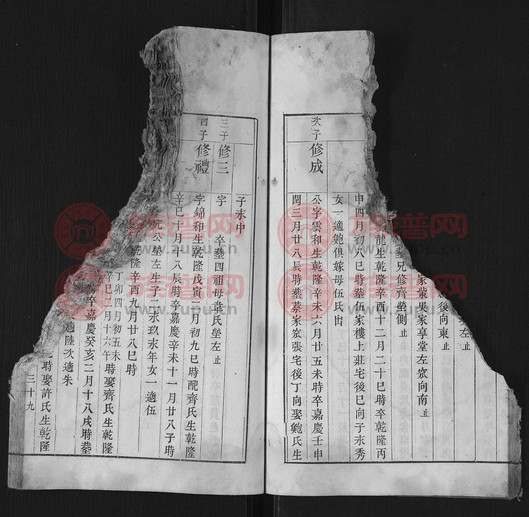 左止
後向東止
冢葉吳家享堂左窆向南止
兄修齊塋側止
龍生乾隆辛酉十二月二十巳時卒乾隆丙
申四月初八巳時葬伍家樓上莊宅後巳向子永秀
女一適鮑俱嫁母伍氏出
次子修成
公字雲和生乾隆辛未六月廿五未時卒嘉慶壬申
閏三月廿八辰時葬蔡家窊張宅後丁向娶鮑氏生
子永中
三子修三
字 卒葬四祖母黃氏塋左止
四子修禮
字錦和生乾隆戊寅三月初九巳時配齊氏生乾隆
辛巳十月十八辰時卒嘉慶辛未十一月廿八子時
玩公塋左生子二永玖永年女一適伍
乾隆辛酉九月廿八巳時
丁卯四月初五未
辛巳三月十六午時娶齊氏生乾隆
卒嘉慶癸亥二月十八戌時葬
適陸次適朱
巳時娶許氏生乾隆
三十九
族谱网
www.zupu.cn